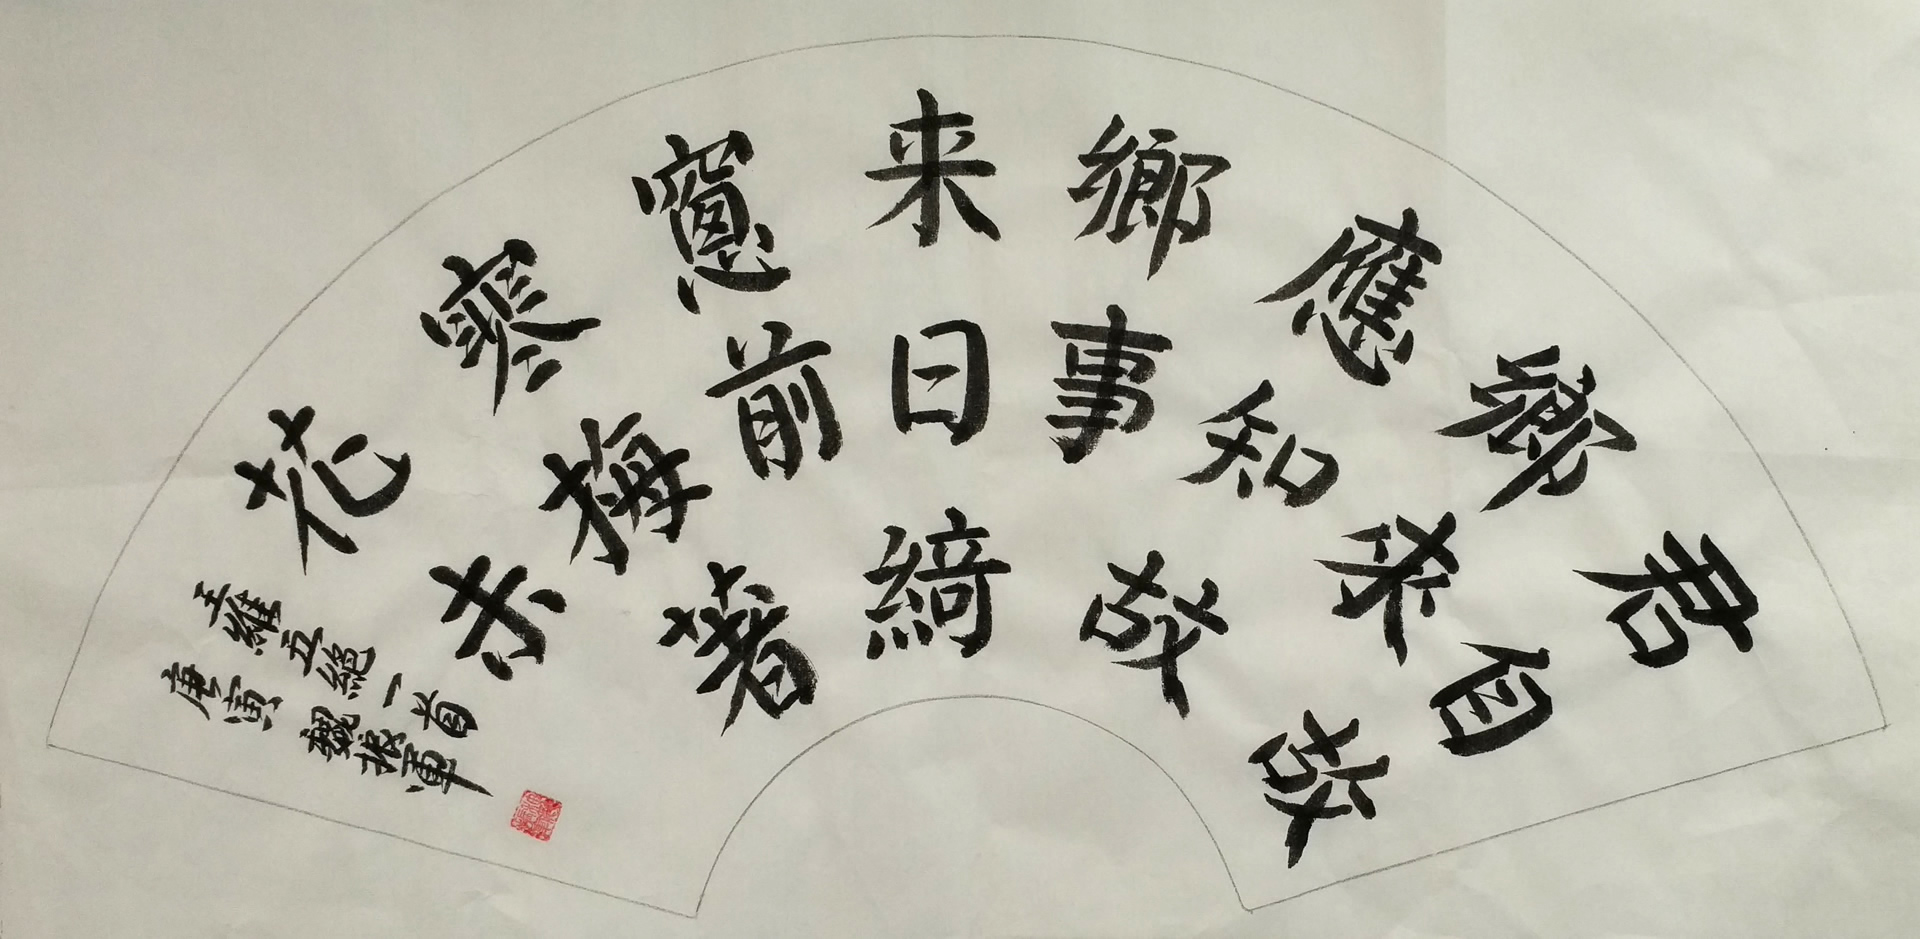 君自故
鄉來
應知故
鄉事
来日綺
窻前
寒梅著
花未
王維五絕一首
庚寅 魏振軍